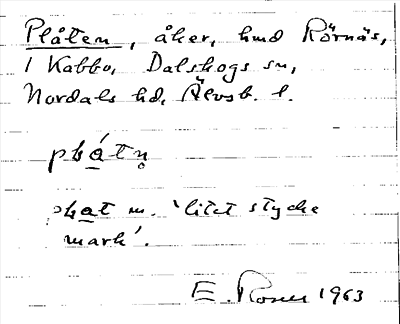 Plåten, åker, hmd Rörnäs,
1 Kabbo, Dalskogs sn,
Nordals hd, Älvsb. l.
plåtn̥
plat m. 'litet stycke
mark'.
E. Rosell 1963